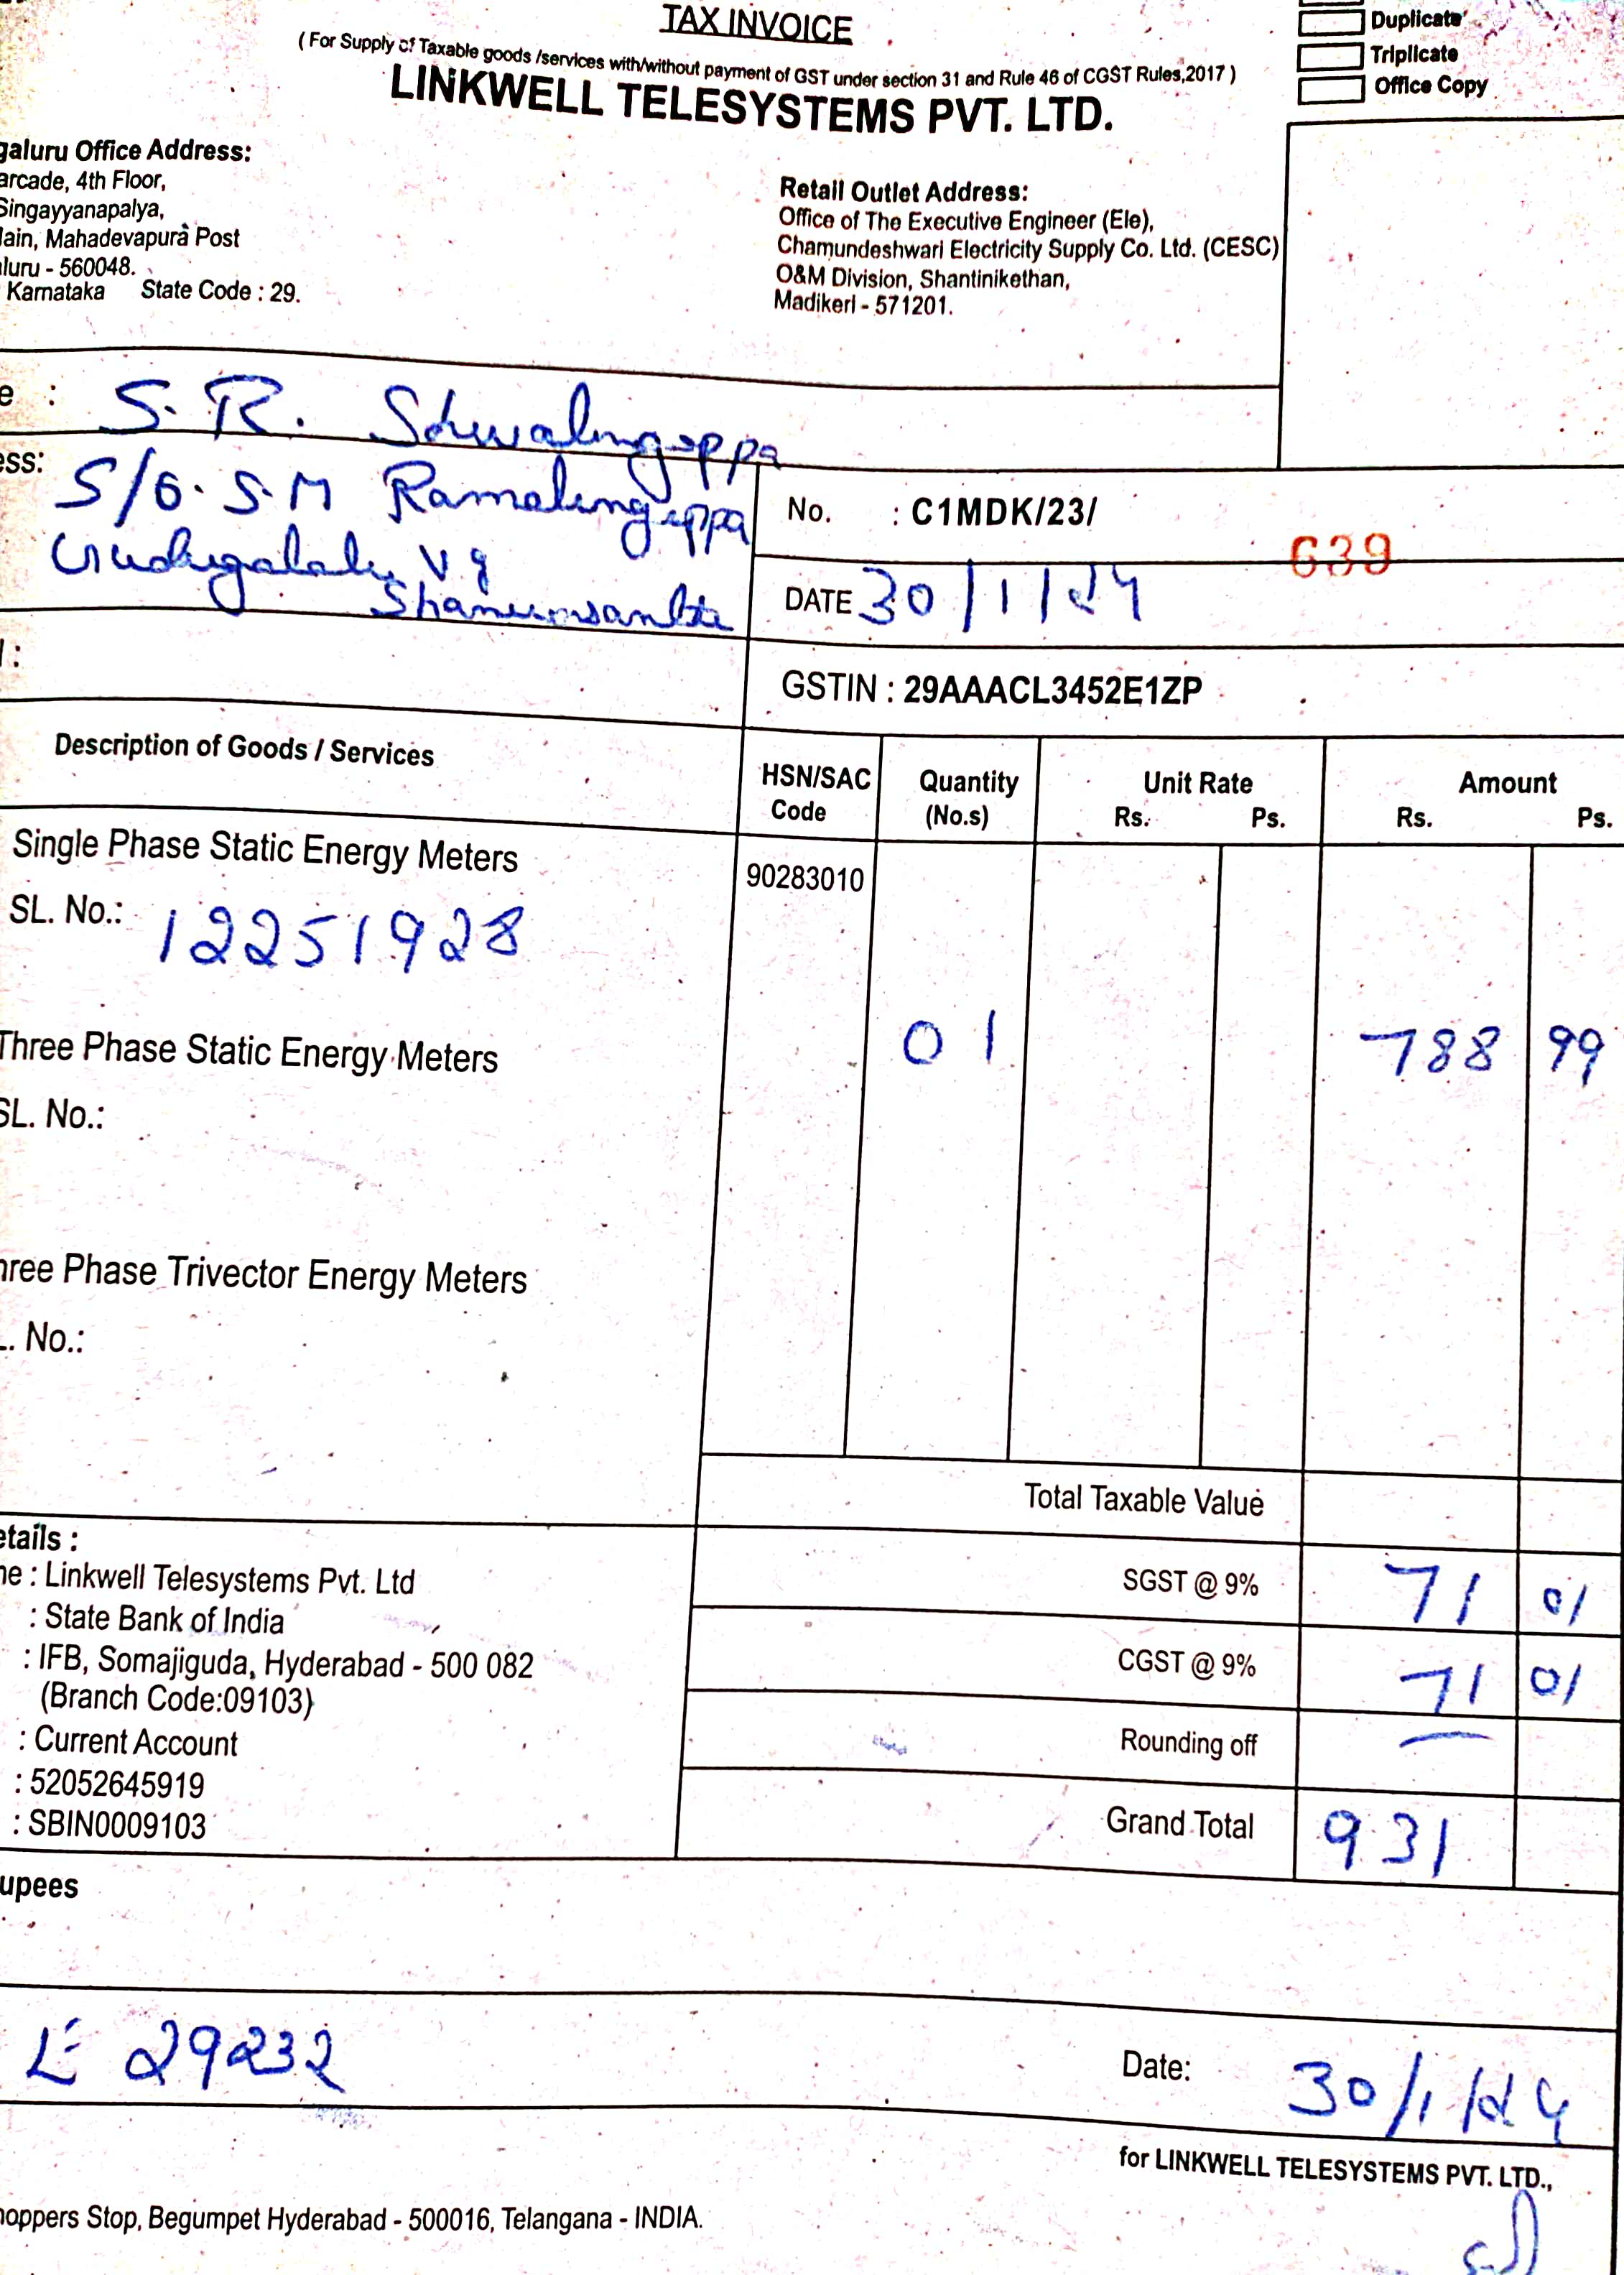 TAX INVOICE
( For Supply of Taxable goods /services with/without payment of GST under section 31 and Rule 46 of CGST Rules,2017 )
LINKWELL TELESYSTEMS PVT. LTD.
Duplicate
Triplicate
Office Copy
galuru Office Address:
arcade, 4th Floor,
Singayyanapalya,
lain, Mahadevapura Post
luru - 560048.
Karnataka State Code : 29.
Retail Outlet Address:
Office of The Executive Engineer (Ele),
Chamundeshwari Electricity Supply Co. Ltd. (CESC)
O&M Division, Shantinikethan,
Madikeri - 571201.
e : S. R.
ess: S/o. S.M Ramalingappa
No. : C1MDK/23/ 639
DATE 30/1/24
GSTIN : 29AAACL3452E1ZP
Description of Goods / Services
HSN/SAC Code
Quantity (No.s)
Unit Rate
Rs. Ps.
Amount
Rs. Ps.
Single Phase Static Energy Meters
90283010
SL. No.: 12251928
01 788 99
Three Phase Static Energy Meters
SL. No.:
hree Phase Trivector Energy Meters
L. No.:
Total Taxable Value
SGST @ 9% 71 01
CGST @ 9% 71 01
Rounding off —
Grand Total 931
etails :
ne : Linkwell Telesystems Pvt. Ltd
: State Bank of India
: IFB, Somajiguda, Hyderabad - 500 082
(Branch Code:09103)
: Current Account
: 52052645919
: SBIN0009103
upees
29232
Date: 30/1/24
for LINKWELL TELESYSTEMS PVT. LTD.,
hoppers Stop, Begumpet Hyderabad - 500016, Telangana - INDIA.